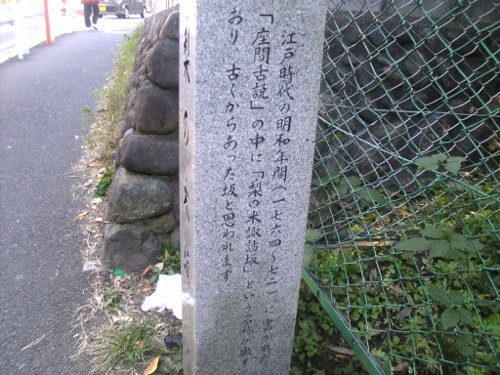 江戸時代の明和年間(一七六四~七二)に書かれた
「座間古説」の中に「梨の木諏訪坂」という名称が出て
おり、古くからあった坂と思われます